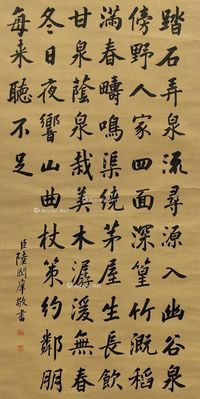 踏石弄泉流尋源入幽谷泉
傍野人家四面深篁竹溉稻
滿春疇鳴渠繞茅屋生長飲
甘泉蔭泉栽美木潺湲無春
冬日夜響山曲杖策約鄰朋
每來聽不足
臣陸潤庠敬書